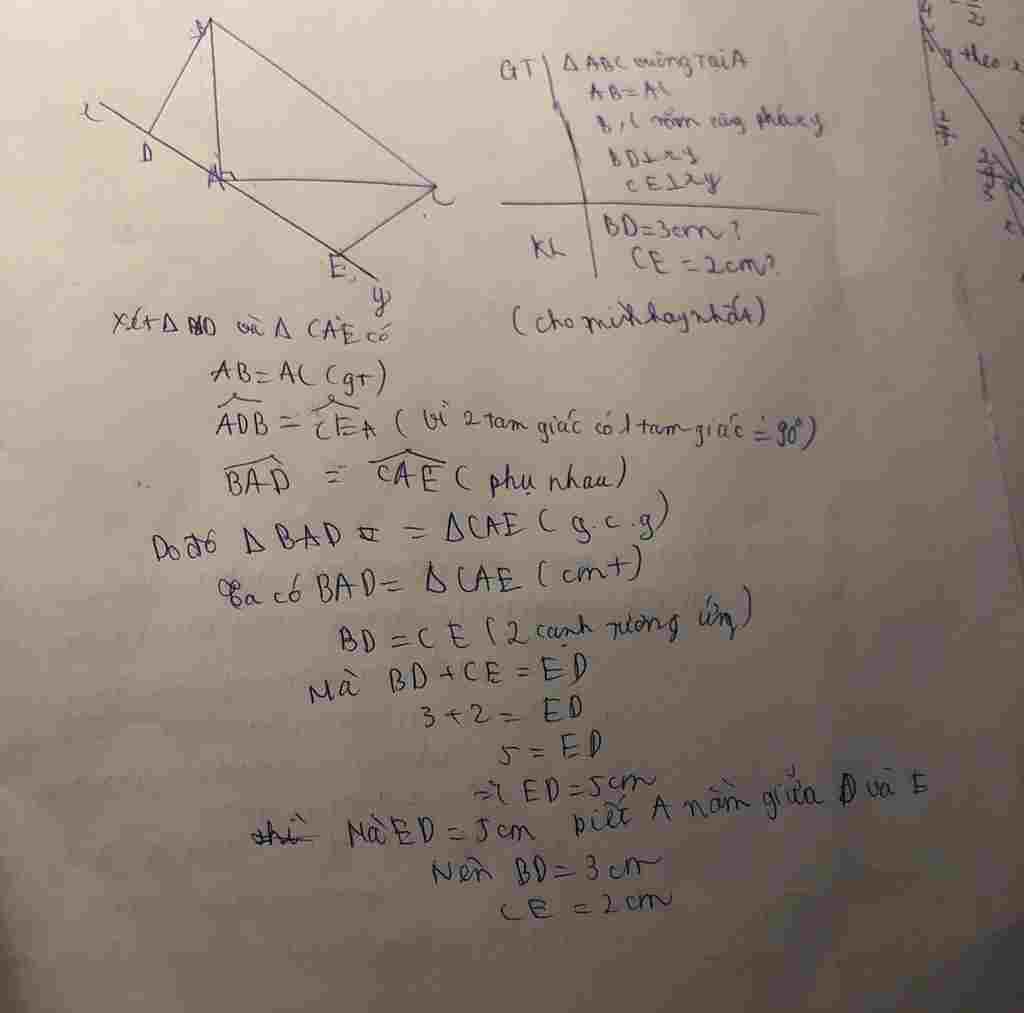 B
x
D
A
C
E
y
GT
Δ ABC vuông Tại A
AB = AC
B, C nằm cùng phía xy
BD ⊥ xy
CE ⊥ xy
KL
BD = 3cm?
CE = 2cm?
(cho mình hay nhất)
Xét Δ và Δ CAE có
AB = AC (gt)
ADB = CEA (vì 2 tam giác có 1 tam giác = 90°)
BAD = CAE (phụ nhau)
Do đó Δ BAD = ΔCAE (g.c.g)
Ta có BAD = Δ CAE (cmt)
BD = CE (2 cạnh tương ứng)
Mà BD + CE = ED
3 + 2 = ED
5 = ED
=> ED = 5cm
Mà ED = 5cm biết A nằm giữa D và E
Nên BD = 3 cm
CE = 2 cm
y theo